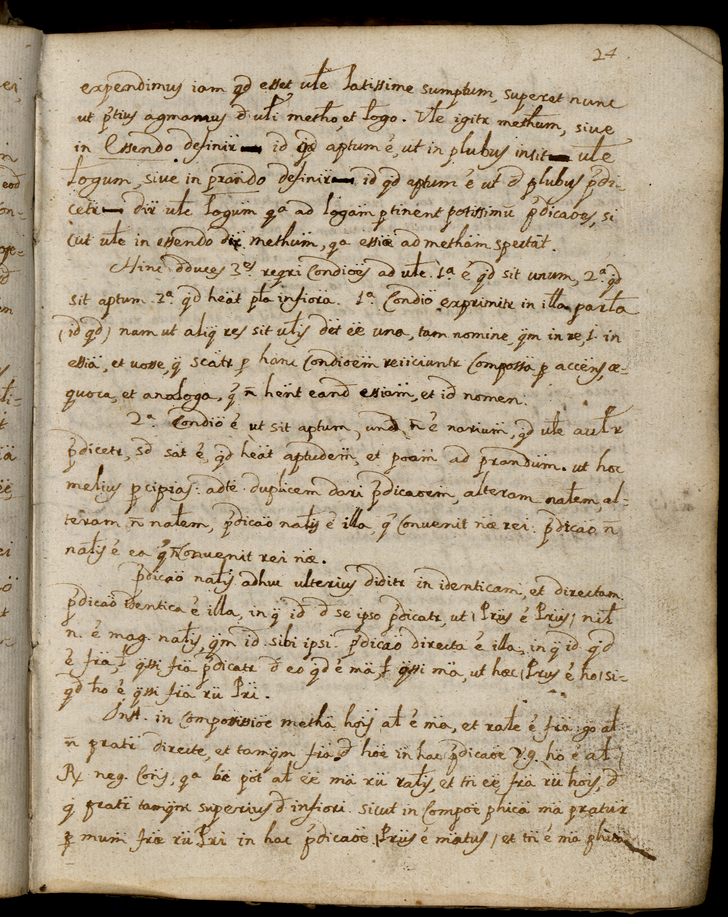 24
expendimus iam qd esset ule latissime sumptum, superat nunc
ut ptius agmamus d uli metho, et logo. Ule igitr methum, siue
in Essendo definir — id qd aptum é, ut in plubus insit — ule
logum, siue in prando definir — id qd aptum é ut d plubus pdi-
cetr — dir ule logum qa ad logam ptinent potissimu pdicaoes, si
cut ule in essendo dir methum, qa essiæ ad metham spertat.
Hinc dduces 3es reqri Condioes ad ule. 1a é qd sit unum, 2a qd
sit aptum 3a qd heat pla infiora. 1a Condio exprimitr in illa parla
(id qd) nam ut aliq res sit ulis det ee una, tam nomine, qm in re, l. in
essia, et uosse, q scatr p hanc Condioem reiiciuntr Compossa p accens, æ-
quoca, et analoga, q n hent eand essiam, et id nomen.
2a Condio é ut sit aptum, und n é narium, qd ule actlr
pdicetr, sd sat é, qd heat aptudem, et poam ad prandum. ut hoc
melius pcipias: adte duplicem dari pdicaoem, alteram nalem, al-
teram n nalem, pdicao nalis é illa, q Conuenit næ rei: pdicao n
nalis é ea q n Conuenit rei næ.
pdicao nalis adhuc ulterius diditr in identicam, et directam.
pdicao identica é illa, in q id d se ipso pdicatr, ut (Prius é Prius) nil
n. é mag. nalis, qm id sibi ipsi. pdicao directa é illa, in q id qd
é fra, l qssi fra pdicatr d eo qd é ma, l qssi ma, ut hoc (Prus é ho) si-
qd ho é qssi fra ru Pri.
Inst. in Compossitioe metha hois al é ma, et rale é fra: go al
n pratr directe, et tamqm fra d hoe in hac pdicaoe v.g. ho é al (
Rx neg. Cons, qa be pot al ee ma ru ralis, et tn ee fra ru hois, d
q pratr tamqm superius d infiori. sicut in Compoe phica ma pratur
p mum fræ ru Pri in hac pdicaoe (Prius é matus) et tn é ma phica